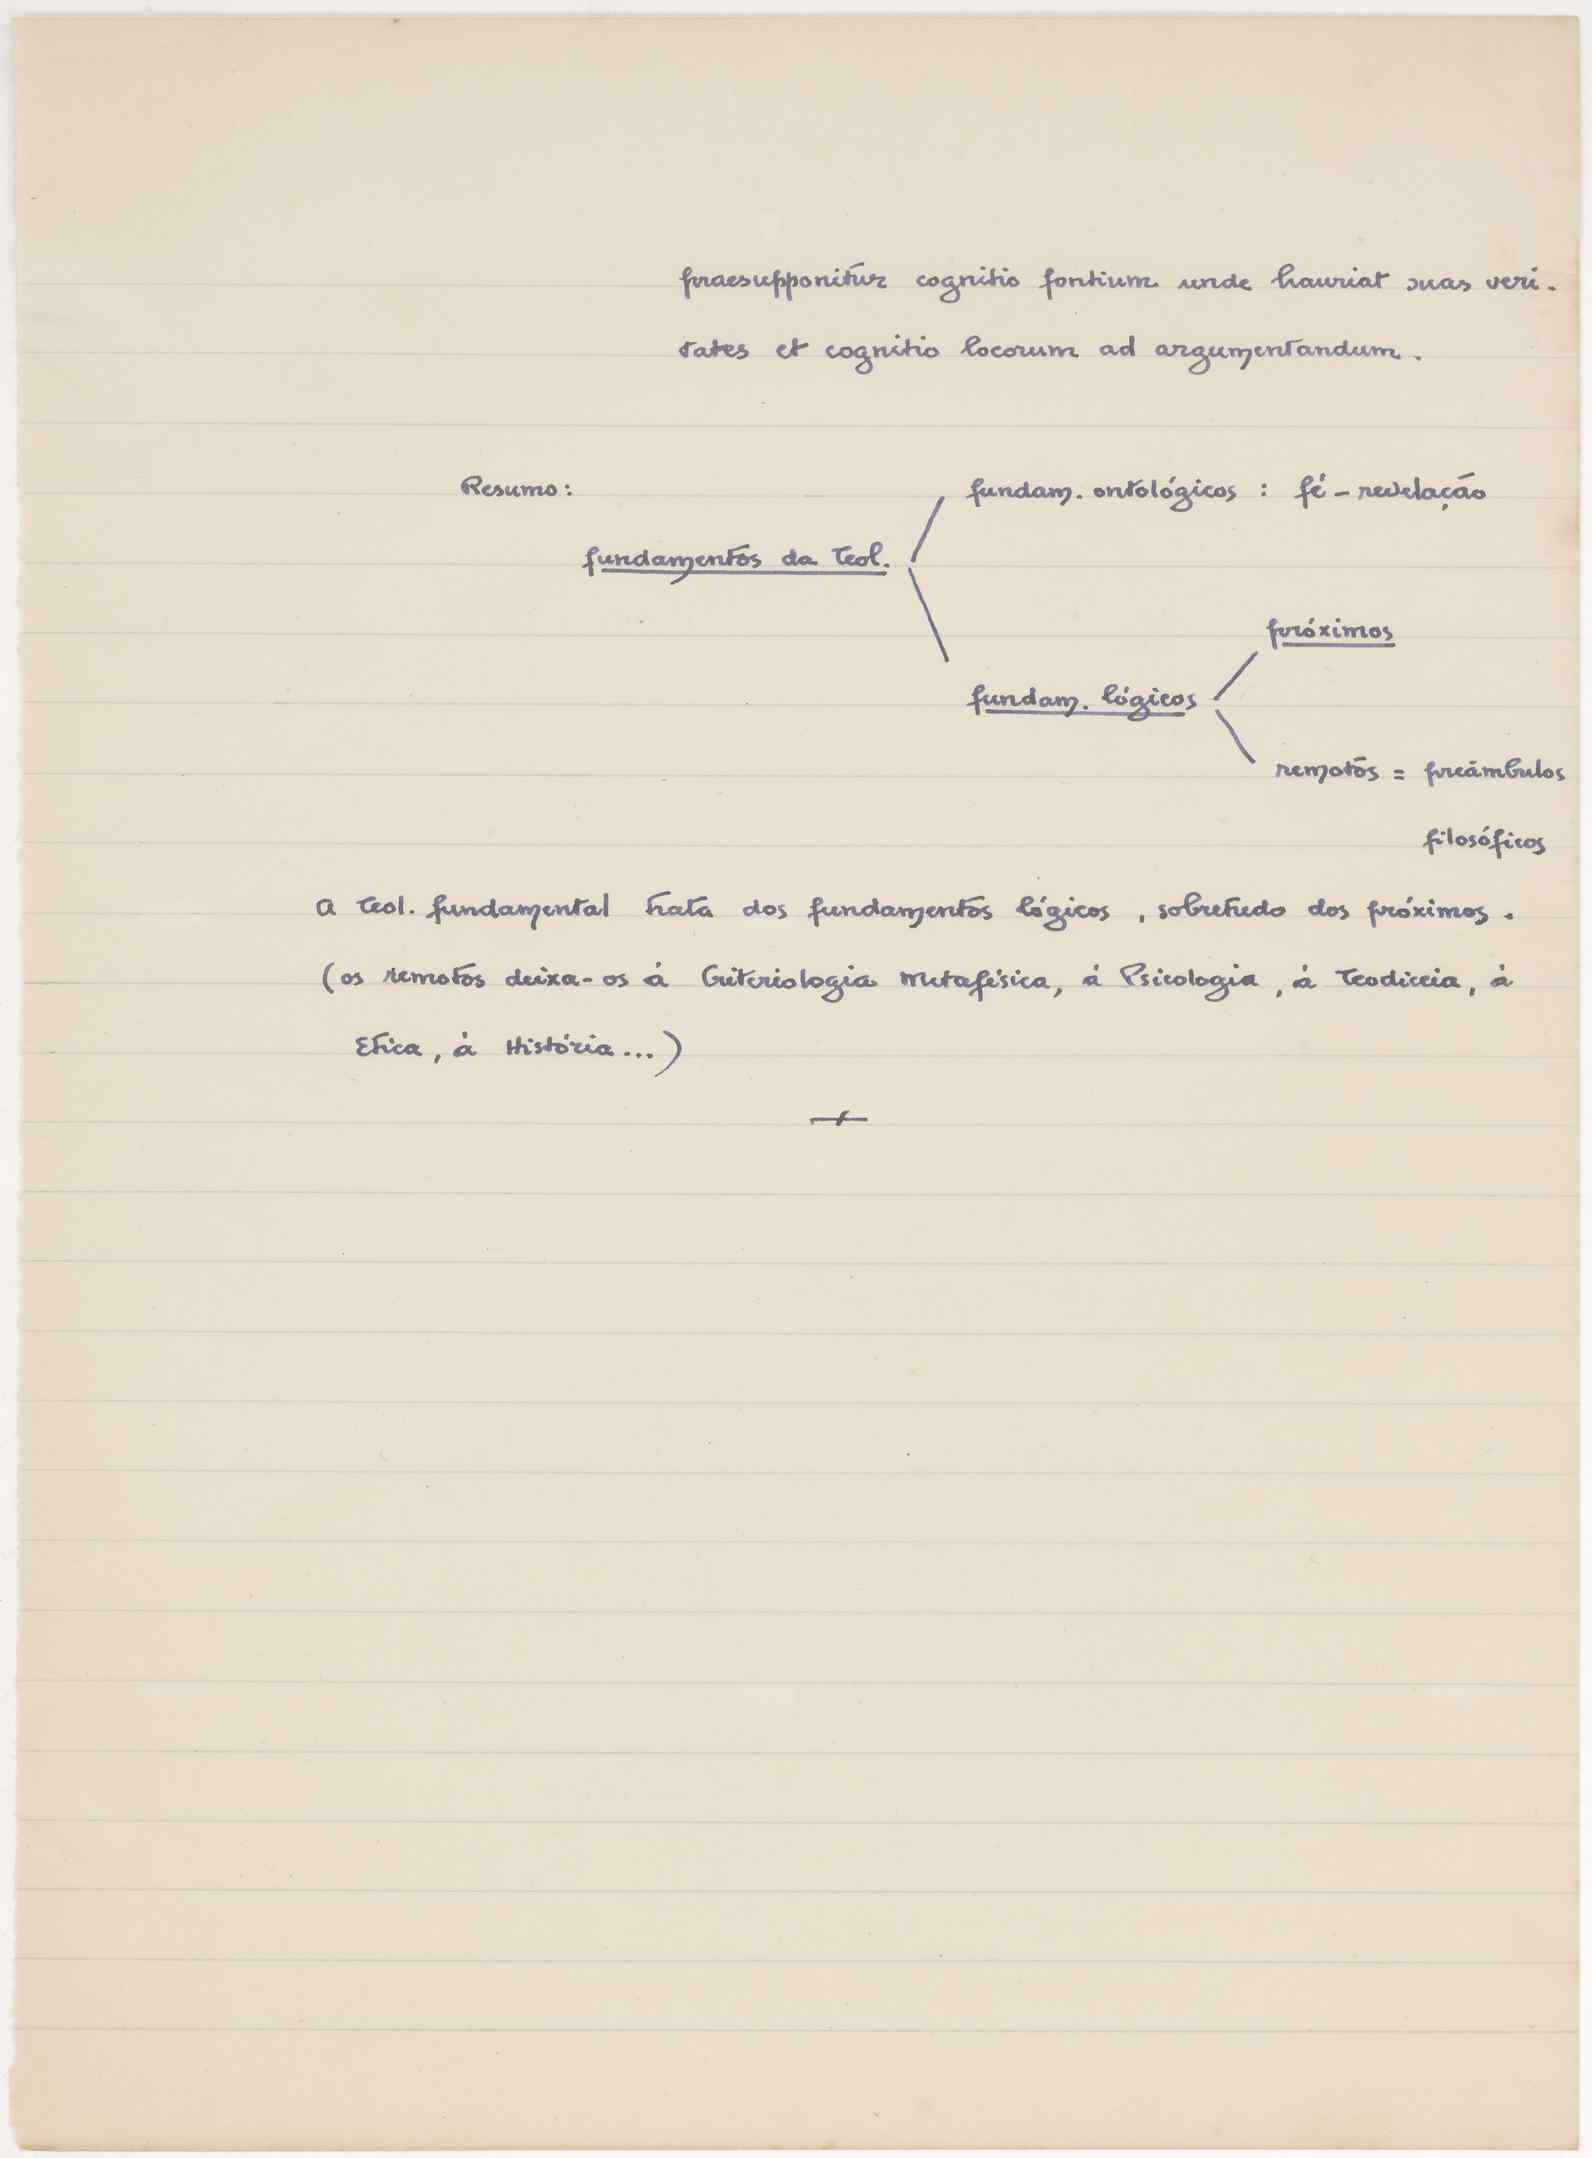 praesupponitur cognitio fontium unde hauriat suas veri-
tates et cognitio locorum ad argumentandum.
Resumo:
fundam. ontológicos : fé - revelação
fundamentos da Teol.
próximos
fundam. lógicos
remotos = preâmbulos
filosóficos
A Teol. fundamental trata dos fundamentos lógicos, sobretudo dos próximos.
(os remotos deixa-os à Criteriologia Metafísica, à Psicologia, à Teodiceia, à
Etica, à História...)